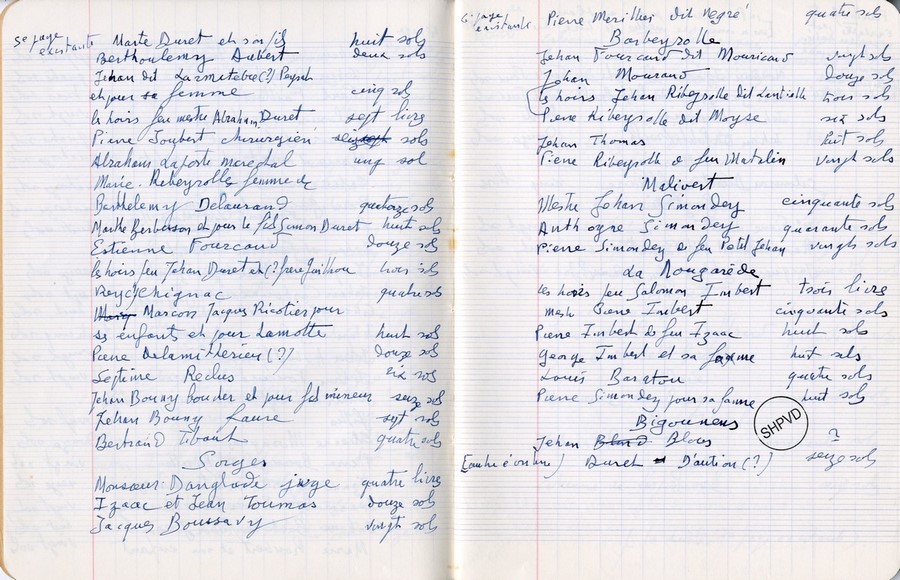 5e page
existante
Marte Duret et son fils huit sols
Berthoulemy Dubert deux sols
Jehan dit Larmetebre(?) Peyrat
et pour sa femme cinq sols
les hoirs feu mestre Abraham Duret sept livre
Pierre Joubert chirurgien sols
Abraham Laporte marechal ung sol
Marie Ribeyrolle femme de
Berthelemy Delaurand quatorze sols
Marthe Berberson et pour le fils Simon Duret huit sols
Estienne Fourcaud douze sols
les hoirs feu Jehan Duret et (?) frere Guilhou trois sols
Reychignac quatre sols
Marcon Jacques Ricotier pour
ses enfants et pour Lamotte huit sols
Pierre Delamitherien (?) douze sols
Septime Reclus six sols
Jehan Bouny bouder et pour fils mineur seize sols
Jehan Bouny Faure sept sols
Bertrand Tibaut quatre sols
Sorges
Monsieur Danglade juge quatre livres
Izaac et Jean Toumas douze sols
Jacques Boussavy vingt sols
6e page
existante
Pierre Merilher dit Negre quatre sols
Barbeyrolle
Jehan Fourcaud dit Mouricaud vingt sols
Jehan Mourand douze sols
les hoirs Jehan Ribeyrolle dit trois sols
Pierre Ribeyrolle dit Moyse six sols
Jehan Thomas huit sols
Pierre Ribeyrolle de feu Matelin vingt sols
Malivert
Mestre Jehan Simondey cinquante sols
Anthoyne Simondey quarante sols
Pierre Simondey de feu Petit Jehan vingt sols
La Nougarède
Les hoirs feu Salomon Imbert trois livre
Mestre Pierre Imbert cinquante sols
Pierre Imbert de feu Izaac huit sols
George Imbert et sa femme huit sols
Louis Baratou quatre sols
Pierre Simondey pour sa femme huit sols
Bigouneus
Jehan Blois ?
Duret D'aution (?) seize sols
SHPVD